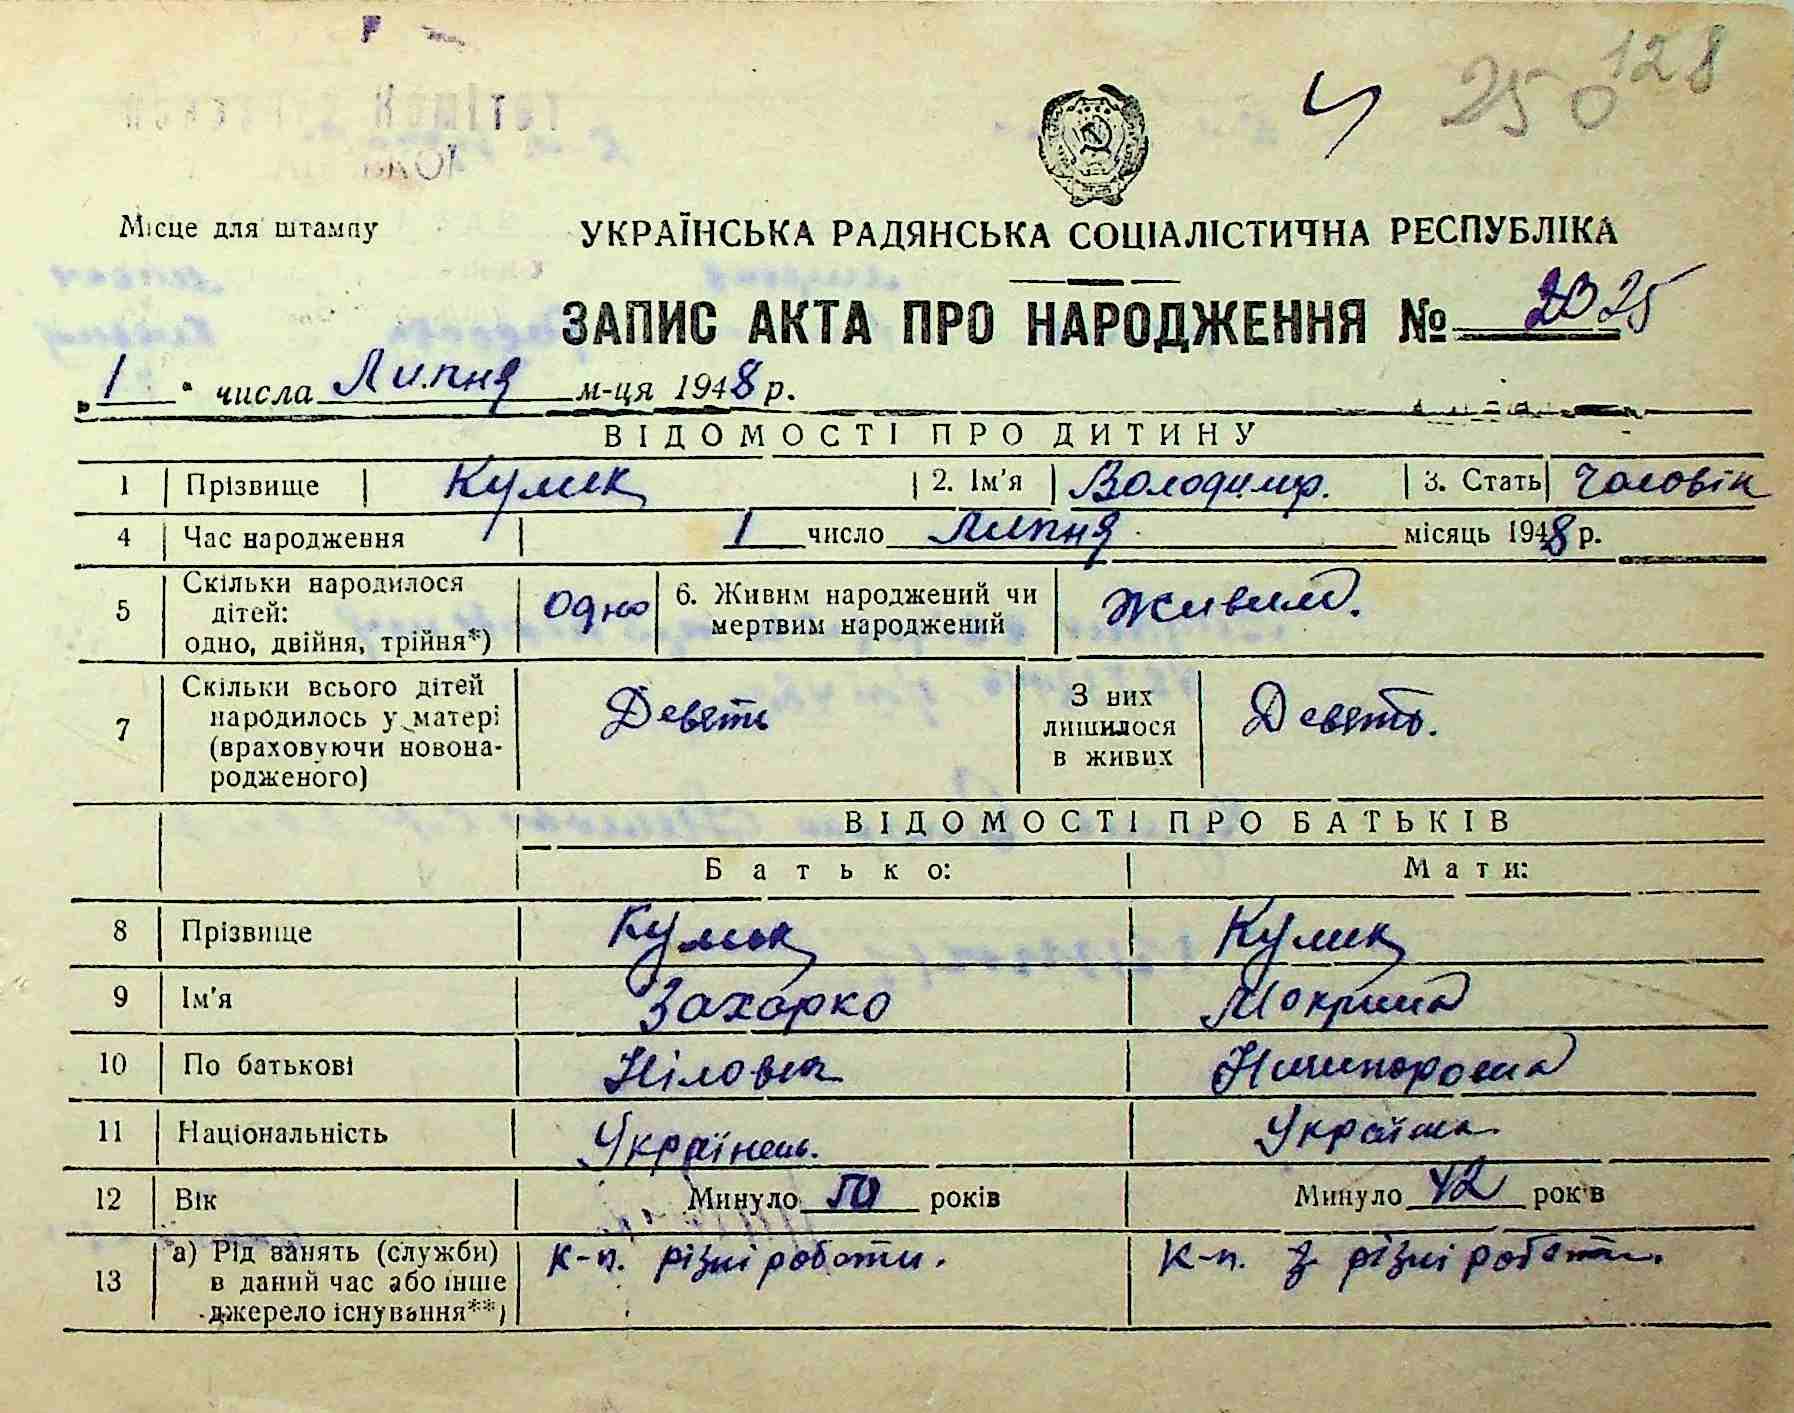 128
250
Місце для штампу
УКРАЇНСЬКА РАДЯНСЬКА СОЦІАЛІСТИЧНА РЕСПУБЛІКА
ЗАПИС АКТА ПРО НАРОДЖЕННЯ № 2025
„ 1 " числа Липня м-ця 1948 р.
ВІДОМОСТІ ПРО ДИТИНУ
1 Прізвище Кулик 2. Ім'я Володимир. 3. Стать Чоловік
4 Час народження 1 число Липня місяць 1948 р.
5 Скільки народилося дітей: одно, двійня, трійня*) одно 6. Живим народжений чи мертвим народжений Живим.
7 Скільки всього дітей народилось у матері (враховуючи новонародженого) Девять З них лишилося в живих Девять.
ВІДОМОСТІ ПРО БАТЬКІВ
Батько: Мати:
8 Прізвище Кулик Кулик
9 Ім'я Захарко Мокрина
10 По батькові Нілович Ничипоровна
11 Національність Українець. Українка
12 Вік Минуло 50 років Минуло 42 років
13 а) Рід занять (служби) в даний час або інше джерело існування**) к-п. різні роботи. к-п. різні роботи.